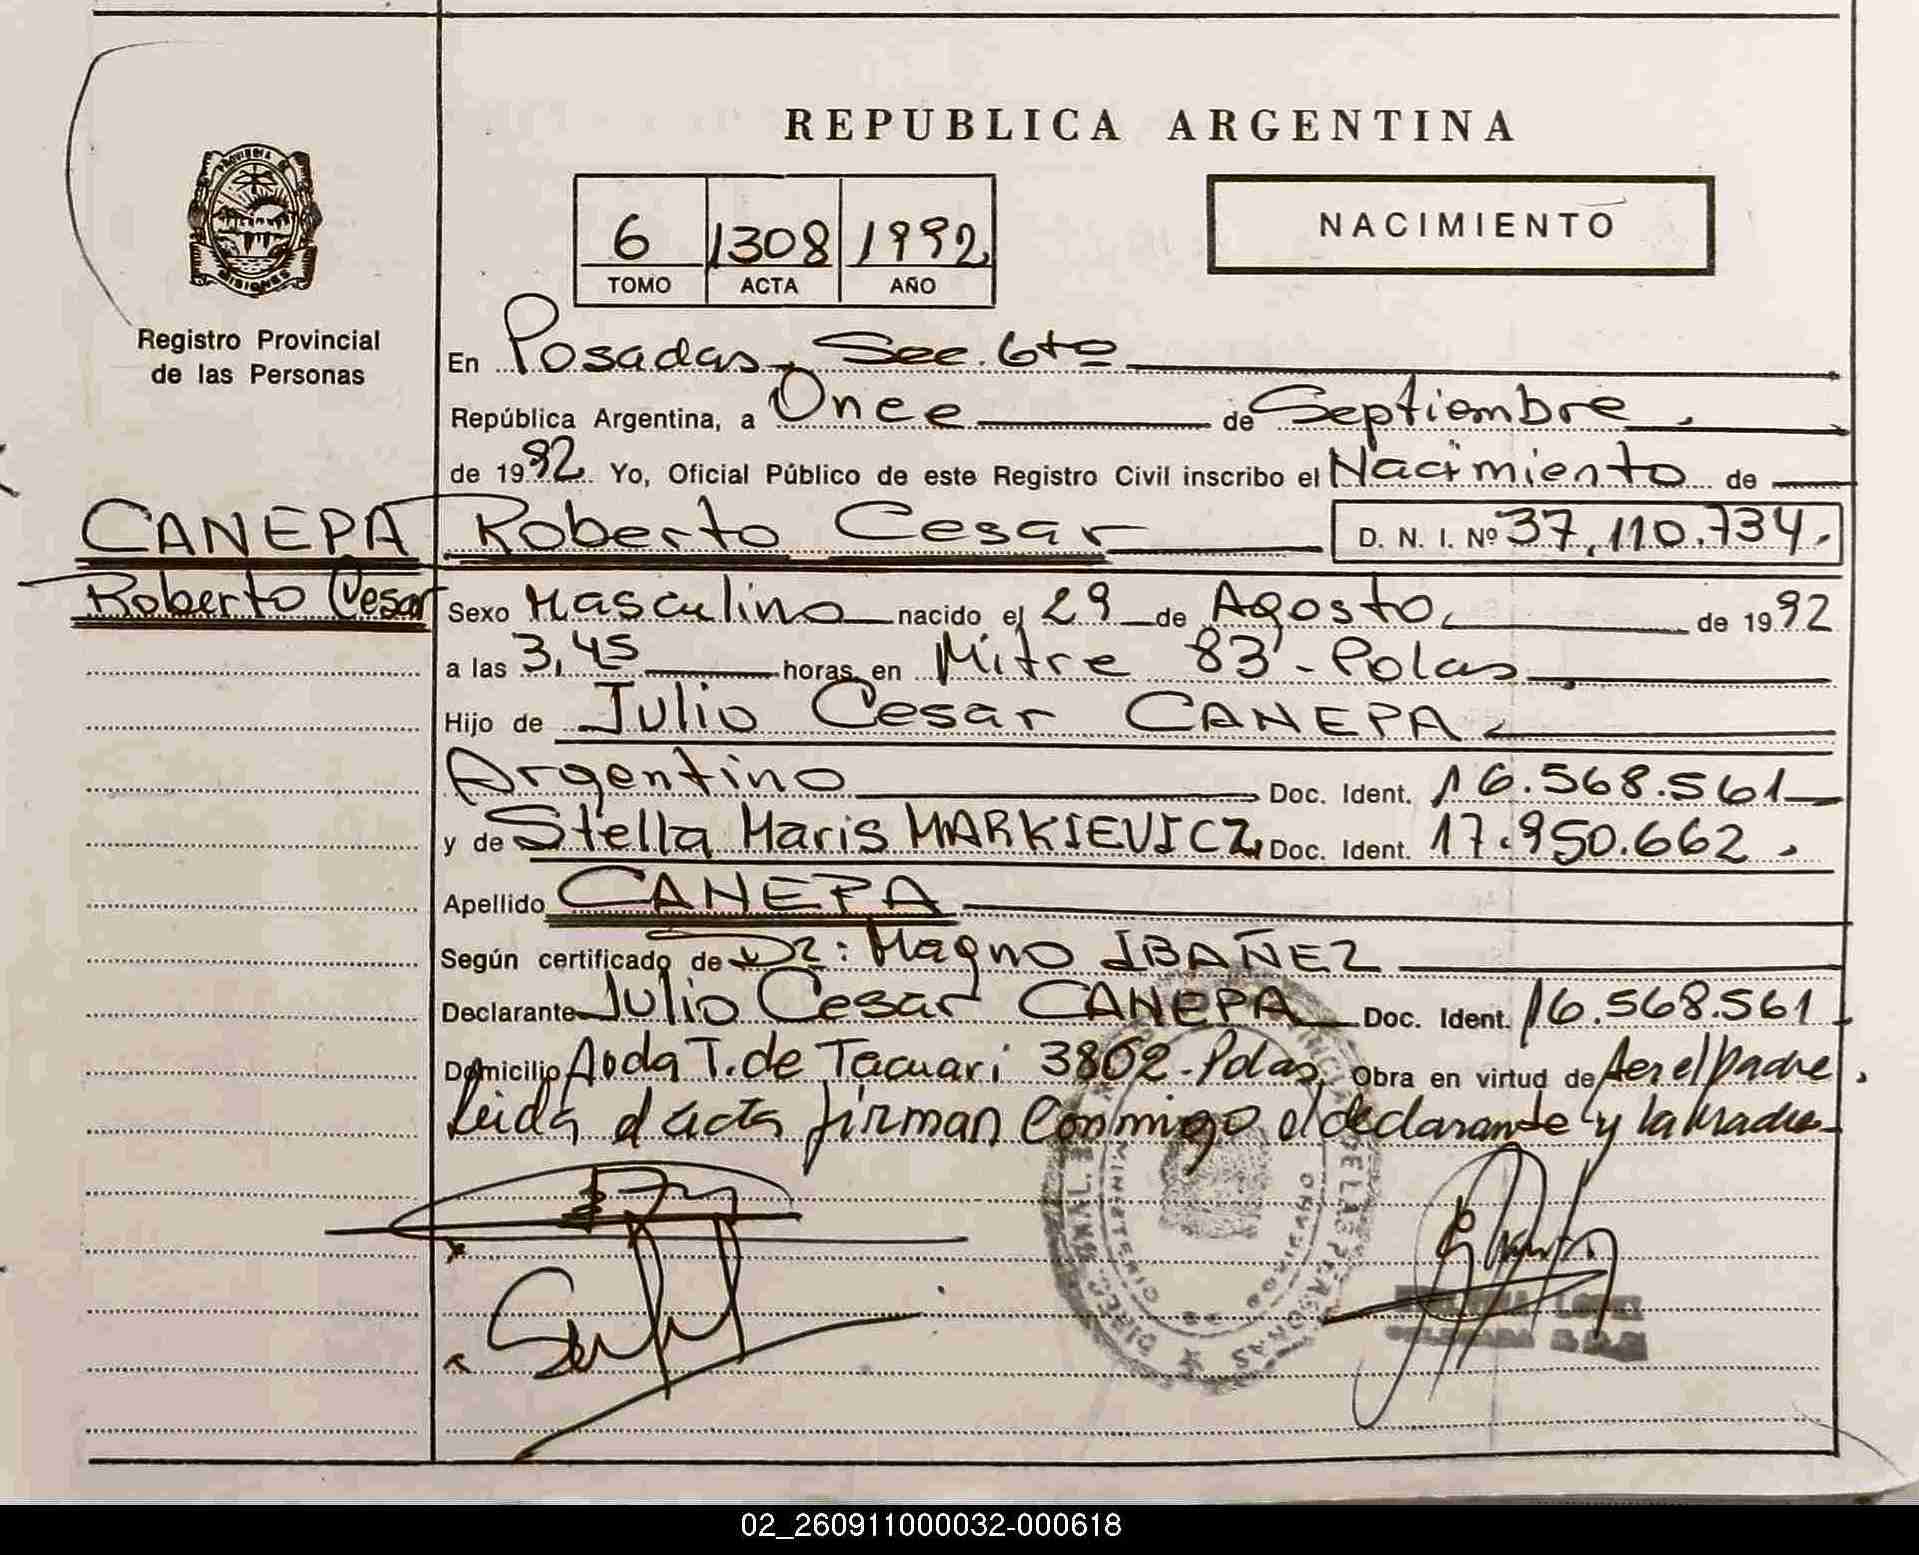 REPUBLICA ARGENTINA
PROVINCIA DE
MISIONES
Registro Provincial
de las Personas
6 1308 1992
TOMO ACTA AÑO
NACIMIENTO
En Posadas, Sec. 6ta
República Argentina, a Once de Septiembre.
de 1992. Yo, Oficial Público de este Registro Civil inscribo el Nacimiento de
CANEPA Roberto Cesar D. N. I. Nº 37.110.734.
Roberto Cesar
Sexo Masculino nacido el 29 de Agosto, de 1992
a las 3,45 horas en Mitre 83 - Pdas
Hijo de Julio Cesar CANEPA
Argentino Doc. Ident. 16.568.561
y de Stella Maris MARKIEVICZ, Doc. Ident. 17.950.662.
Apellido CANEPA
Según certificado de Dr: Magno IBAÑEZ
Declarante Julio Cesar CANEPA Doc. Ident. 16.568.561
Domicilio Avda T. de Tacuari 3802 - Pdas, Obra en virtud de ser el padre.
Leida el acta firman conmigo el declarante y la Madre
DE LAS PERSONAS
MINISTERIO
02_260911000032-000618